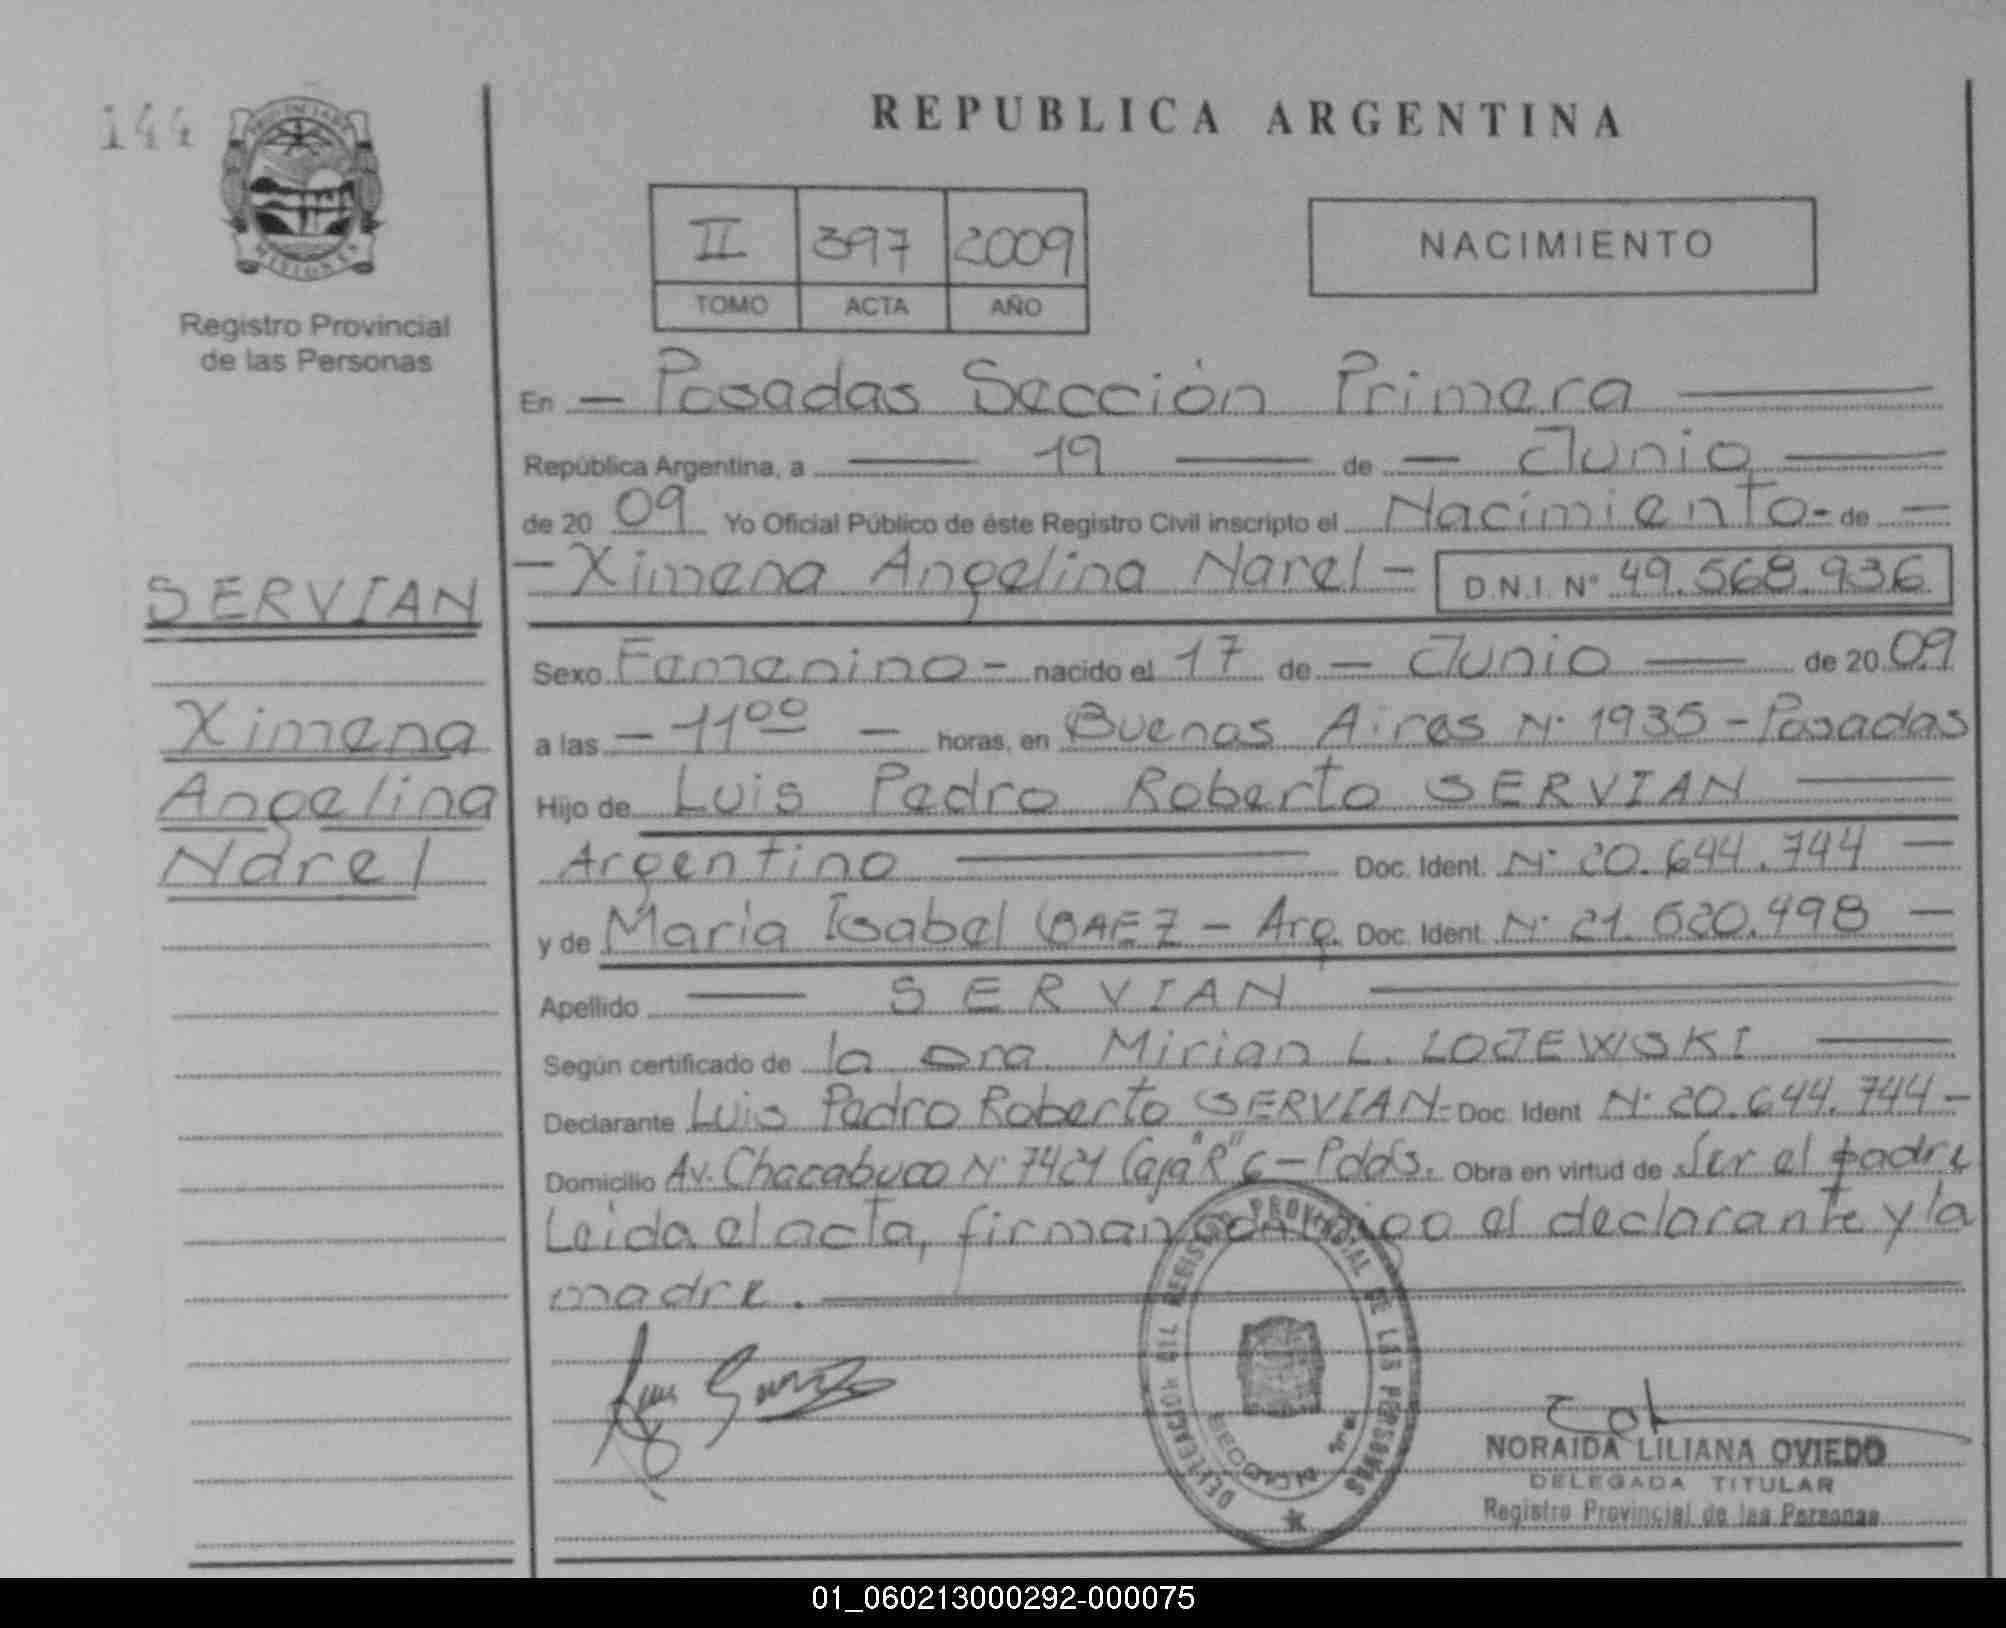 144
REPUBLICA ARGENTINA
II 397 2009
TOMO ACTA AÑO
NACIMIENTO
MISIONES
Registro Provincial
de las Personas
En — Posadas Sección Primera —
República Argentina, a — 19 — de — Junio —
de 20 09 Yo Oficial Público de éste Registro Civil inscripto el Nacimiento - de —
— Ximena Angelina Narel — D.N.I. N° 49.568.936
SERVIAN
Ximena
Angelina
Narel
Sexo Femenino - nacido el 17 de — Junio — de 20 09
a las — 11 00 — horas, en Buenos Aires N° 1935 - Posadas
Hijo de Luis Pedro Roberto SERVIAN —
Argentino — Doc. Ident. N° 20.644.744 —
y de Maria Isabel BAEZ - Arg. Doc. Ident. N° 21.620.498 —
Apellido — SERVIAN —
Según certificado de la Dra. Mirian L. LOJEWSKI —
Declarante Luis Pedro Roberto SERVIAN - Doc. Ident N° 20.644.744 -
Domicilio Av. Chacabuco N° 7421 Casa "R" 6 - Pdas. Obra en virtud de Ser el padre
Leida el acta, firman el declarante y la
madre. —
DELEGACION DEL REGISTRO PROVINCIAL DE LAS PERSONAS
NORAIDA LILIANA OVIEDO
DELEGADA TITULAR
Registro Provincial de las Personas
01_060213000292-000075